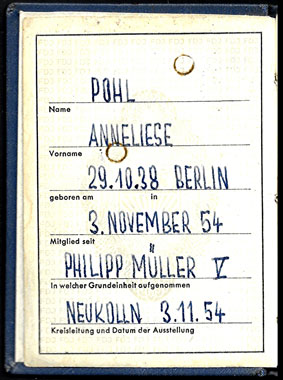 POHL
Name
ANNELIESE
Vorname
29.10.38 BERLIN
geboren am in
3. NOVEMBER 54
Mitglied seit
PHILIPP MÜLLER V
In welcher Grundeinheit aufgenommen
NEUKOLLN 3.11.54
Kreisleitung und Datum der Ausstellung